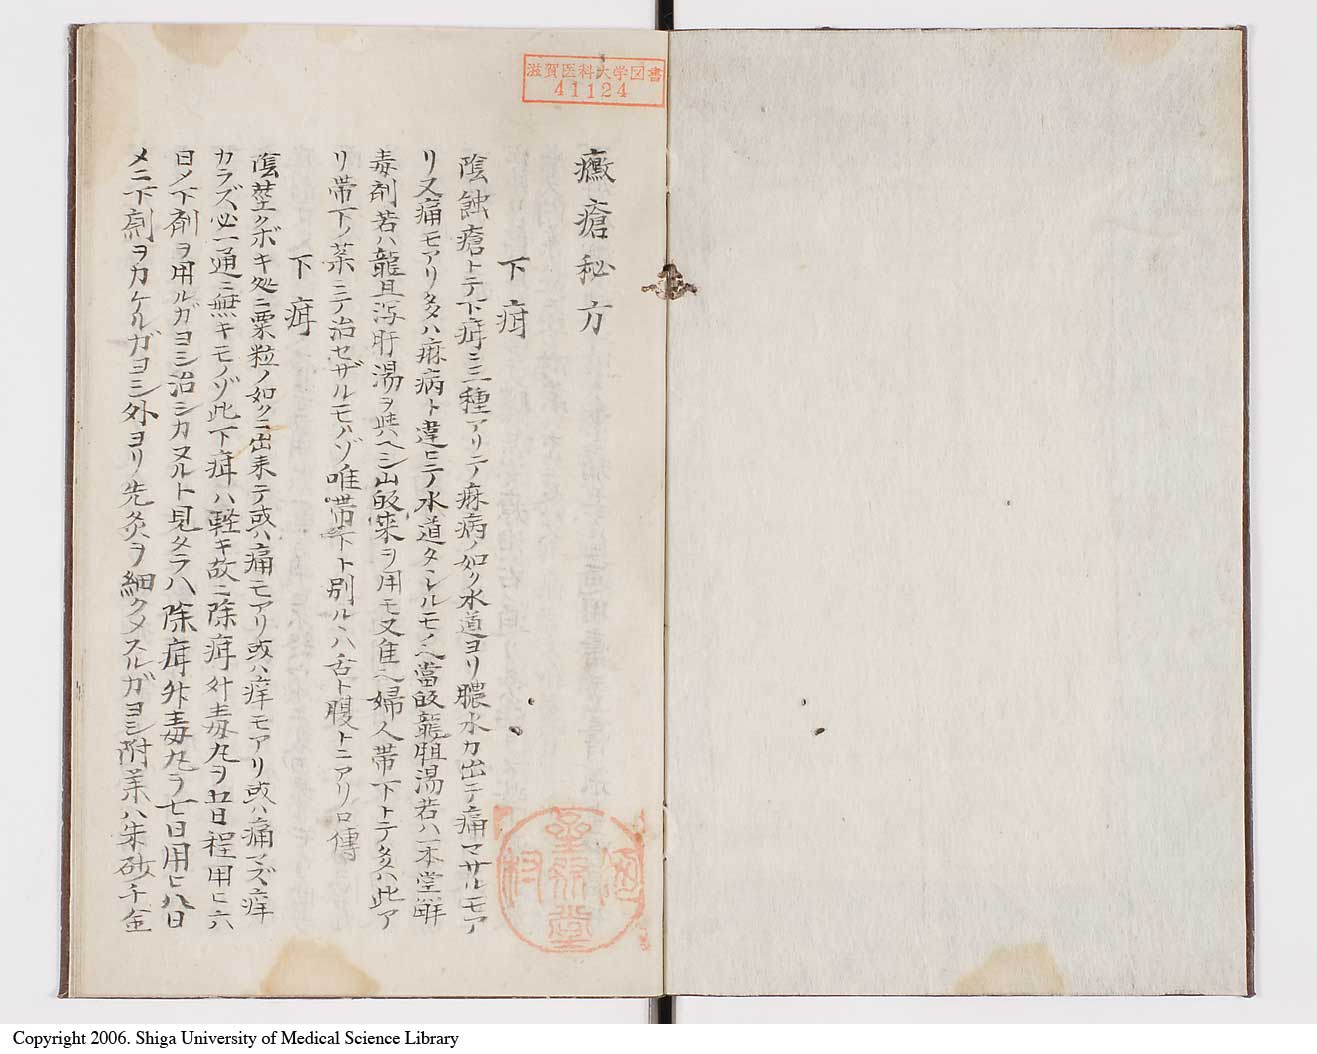 滋賀医科大学図書
41124
黴瘡秘方
下疳
陰蝕瘡トテ下疳ニ三種アリテ痳病ノ如ク水道ヨリ膿水カ出テ痛マサルモア
リ又痛モアリ多ハ痳病ト違ヒテ水道タヽルモノヘ當皈龍胆湯若ハ一本堂解
毒剤若ハ龍旦泻肝湯ヲ與ヘシ山皈来ヲ用モ又佳シ婦人帯下トテ多ハ此ア
リ帯下ノ薬ニテ治セザルモノゾ唯帯下ト別ルヽハ舌ト腹トニアリ口傳
下疳
陰茎クボキ処ニ粟粒ノ如クニ出来テ或ハ痛モアリ或ハ痒モアリ或ハ痛マズ痒
カラズ必一通ニ無キモノゾ此下疳ハ軽キ故ニ除疳外毒丸ヲ五日程用ヒ六
日ノ下剤ヲ用ルガヨシ治シカヌルト見タラハ除疳外毒丸ヲ七日用ヒ八日
メニ下剤ヲカケルガヨシ外ヨリ先灸ヲ細クメスルガヨシ附薬ハ朱砂千金
Copyright 2006. Shiga University of Medical Science Library